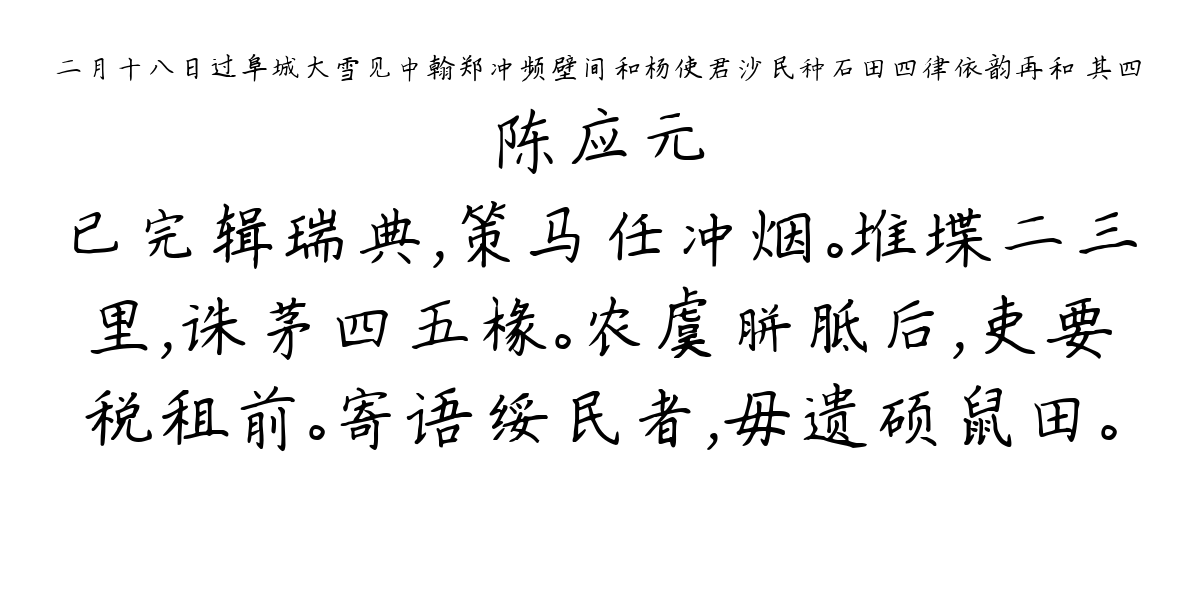 二月十八日过阜城大雪见中翰郑冲频壁间和杨使君沙民种石田四律依韵再和 其四
陈应元
已完辑瑞典,策马任冲烟。堆堞二三
里,诛茅四五椽。农虞胼胝后,吏要
税租前。寄语绥民者,毋遗硕鼠田。